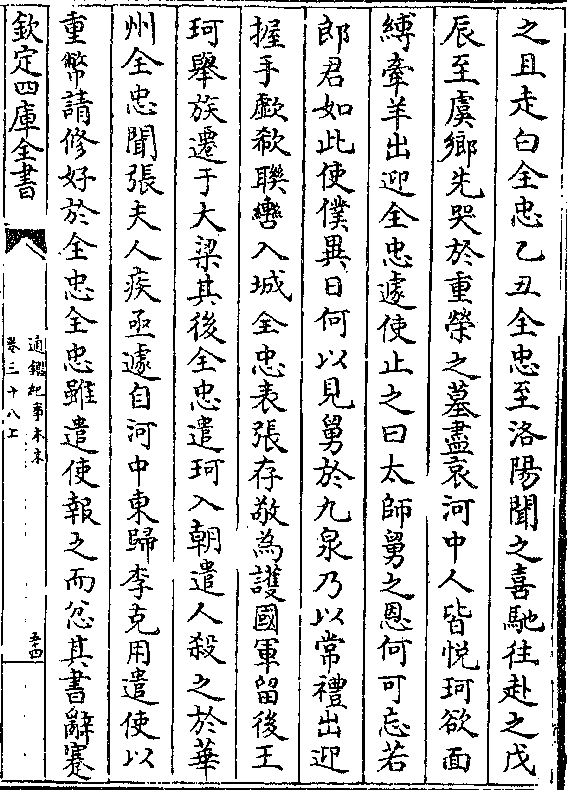 之且走白全忠乙丑全忠至洛陽聞之喜馳往赴之戊
辰至虞鄉先哭於重榮之墓盡哀河中人皆悦珂欲面
縛牽羊出迎全忠遽使止之曰太師舅之恩何可忘若
郎君如此使僕異日何以見舅於九泉乃以常禮出迎
握手歔欷聯轡入城全忠表張存敬為護國軍留後王
珂舉族遷于大梁其後全忠遣珂入朝遣人殺之於華
州全忠聞張夫人疾亟遽自河中東歸李克用遣使以
重幣請修好於全忠全忠雖遣使報之而忿其書辭蹇
欽定四庫全書
通鑑紀事本末
卷三十八上
五十四